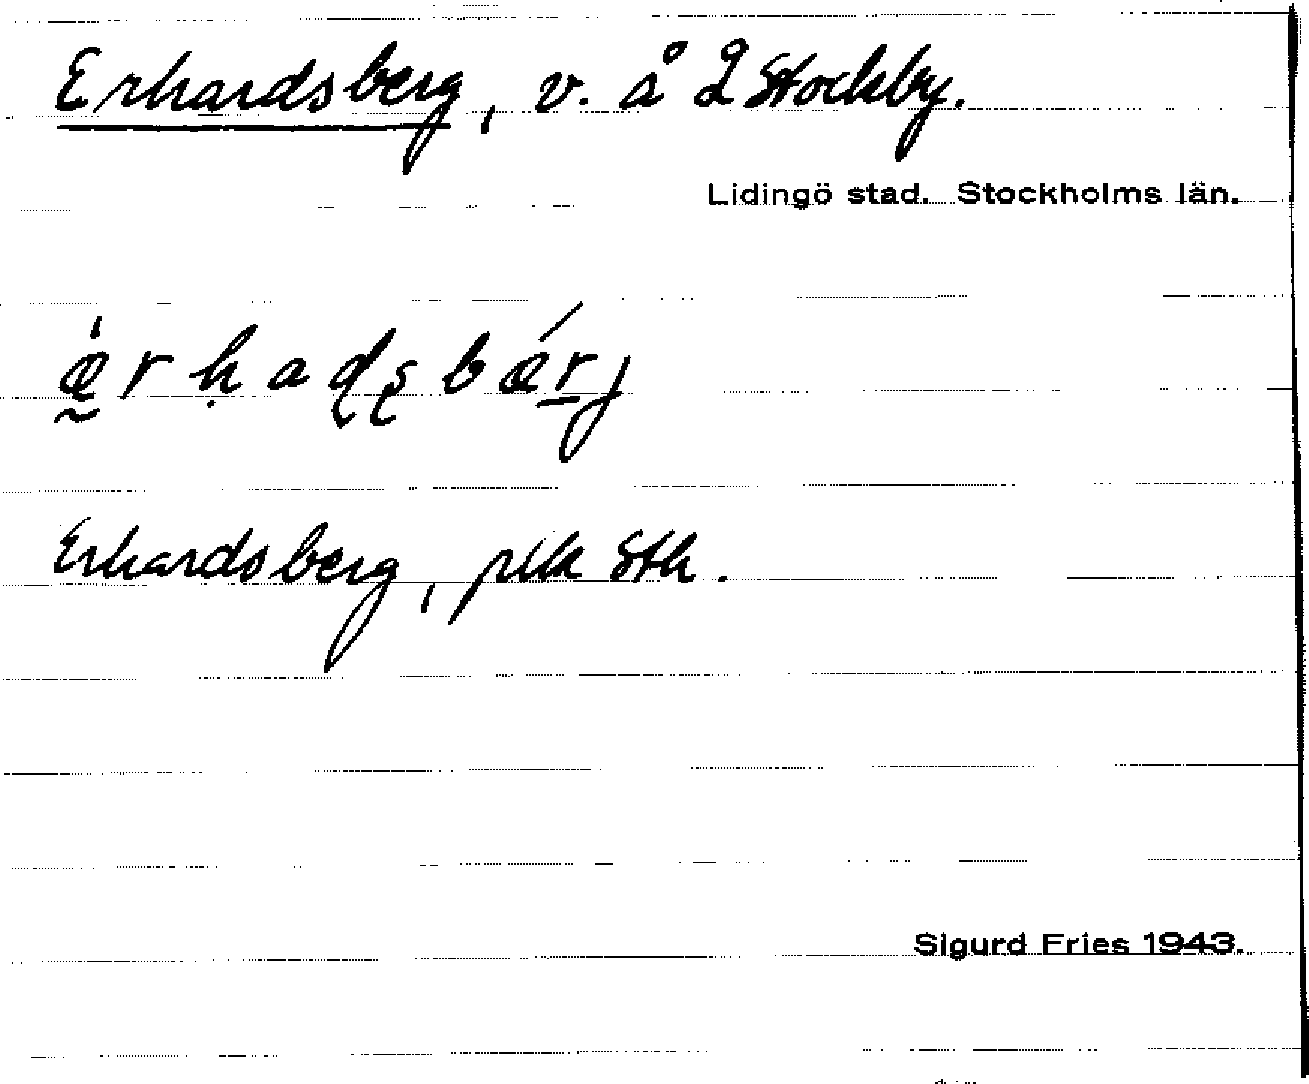 Erhardsberg, v. å 2 Stockby.
Lidingö stad. Stockholms län.
Erhardsberg, pllk Sth.
Sigurd Fries 1943.